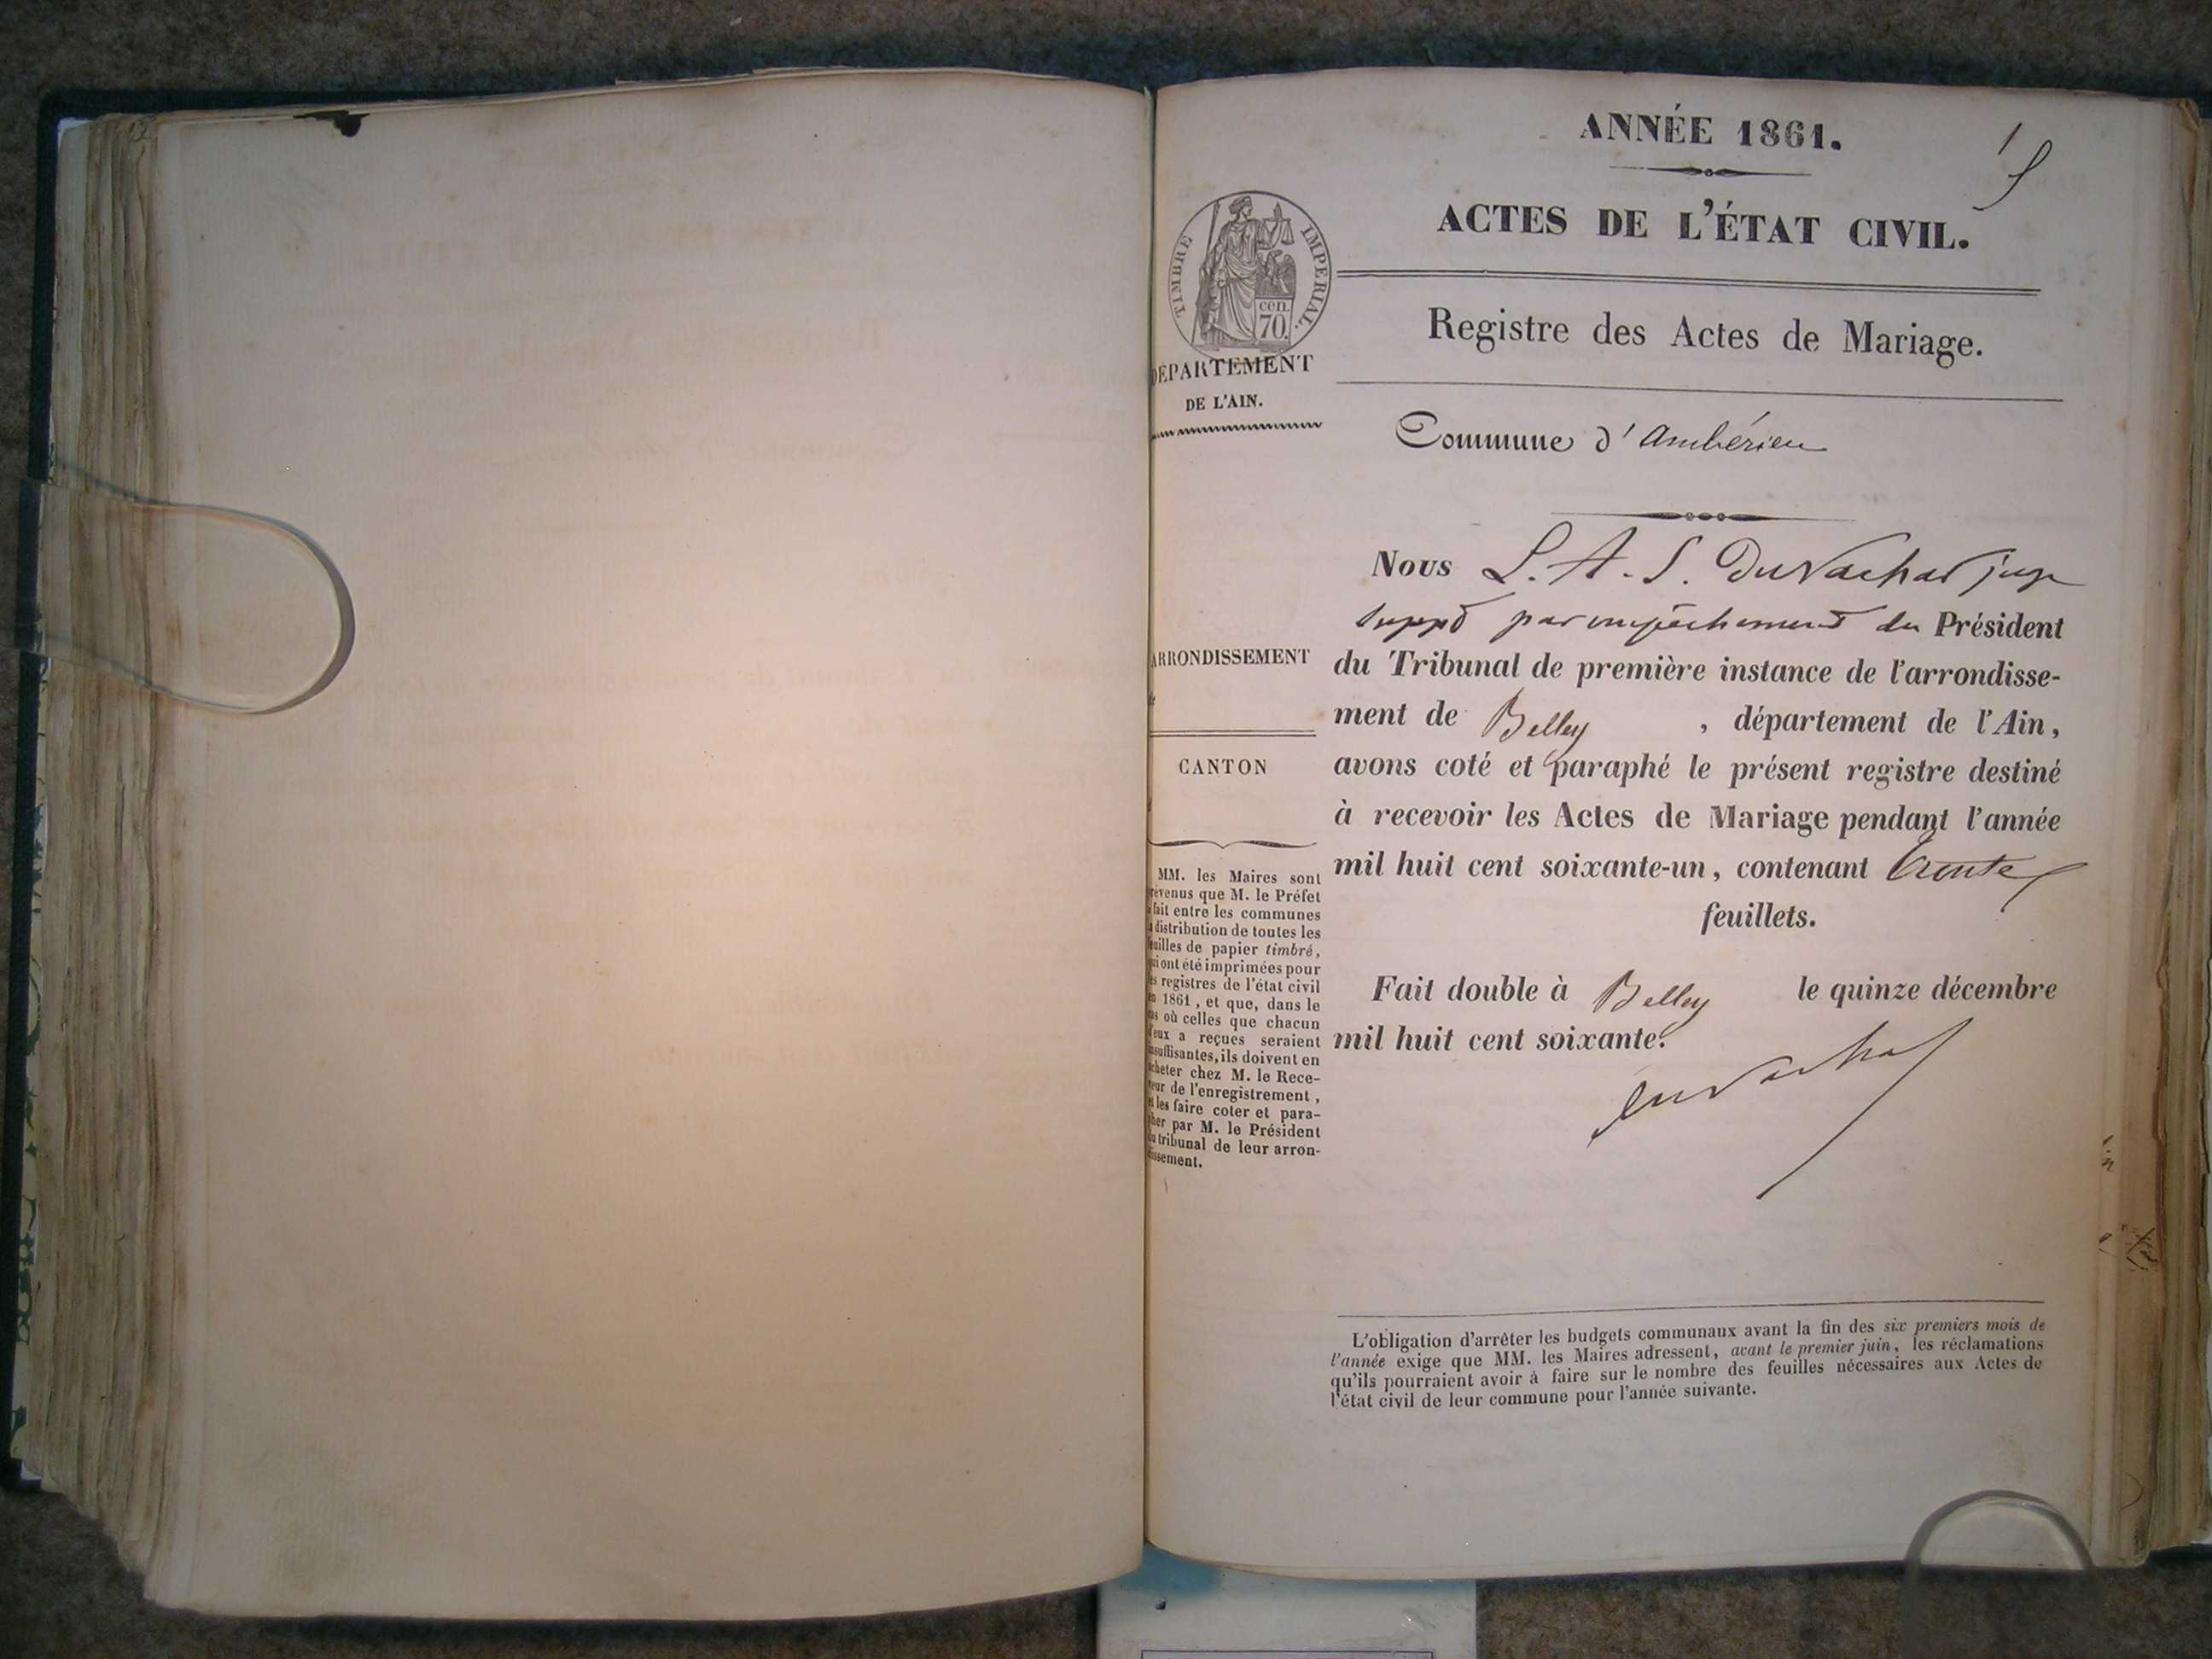 ANNÉE 1861.
1
ACTES DE L'ÉTAT CIVIL.
TIMBRE IMPERIAL.
cen.
70.
Registre des Actes de Mariage.
DÉPARTEMENT
DE L'AIN.
Commune d'Ambérieu
Nous L. A. S. Duvachat juge
suppt par empêchement du Président
du Tribunal de première instance de l'arrondisse-
ment de Belley, département de l'Ain,
avons coté et paraphé le présent registre destiné
à recevoir les Actes de Mariage pendant l'année
mil huit cent soixante-un, contenant trente
feuillets.
Fait double à Belley le quinze décembre
mil huit cent soixante.
Duvachat
ARRONDISSEMENT
de
CANTON
d
MM. les Maires sont
prévenus que M. le Préfet
a fait entre les communes
la distribution de toutes les
feuilles de papier timbré,
qui ont été imprimées pour
les registres de l'état civil
en 1861, et que, dans le
cas où celles que chacun
d'eux a reçues seraient
insuffisantes, ils doivent en
acheter chez M. le Rece-
veur de l'enregistrement,
et les faire coter et para-
pher par M. le Président
du tribunal de leur arron-
dissement.
L'obligation d'arrêter les budgets communaux avant la fin des six premiers mois de
l'année exige que MM. les Maires adressent, avant le premier juin, les réclamations
qu'ils pourraient avoir à faire sur le nombre des feuilles nécessaires aux Actes de
l'état civil de leur commune pour l'année suivante.